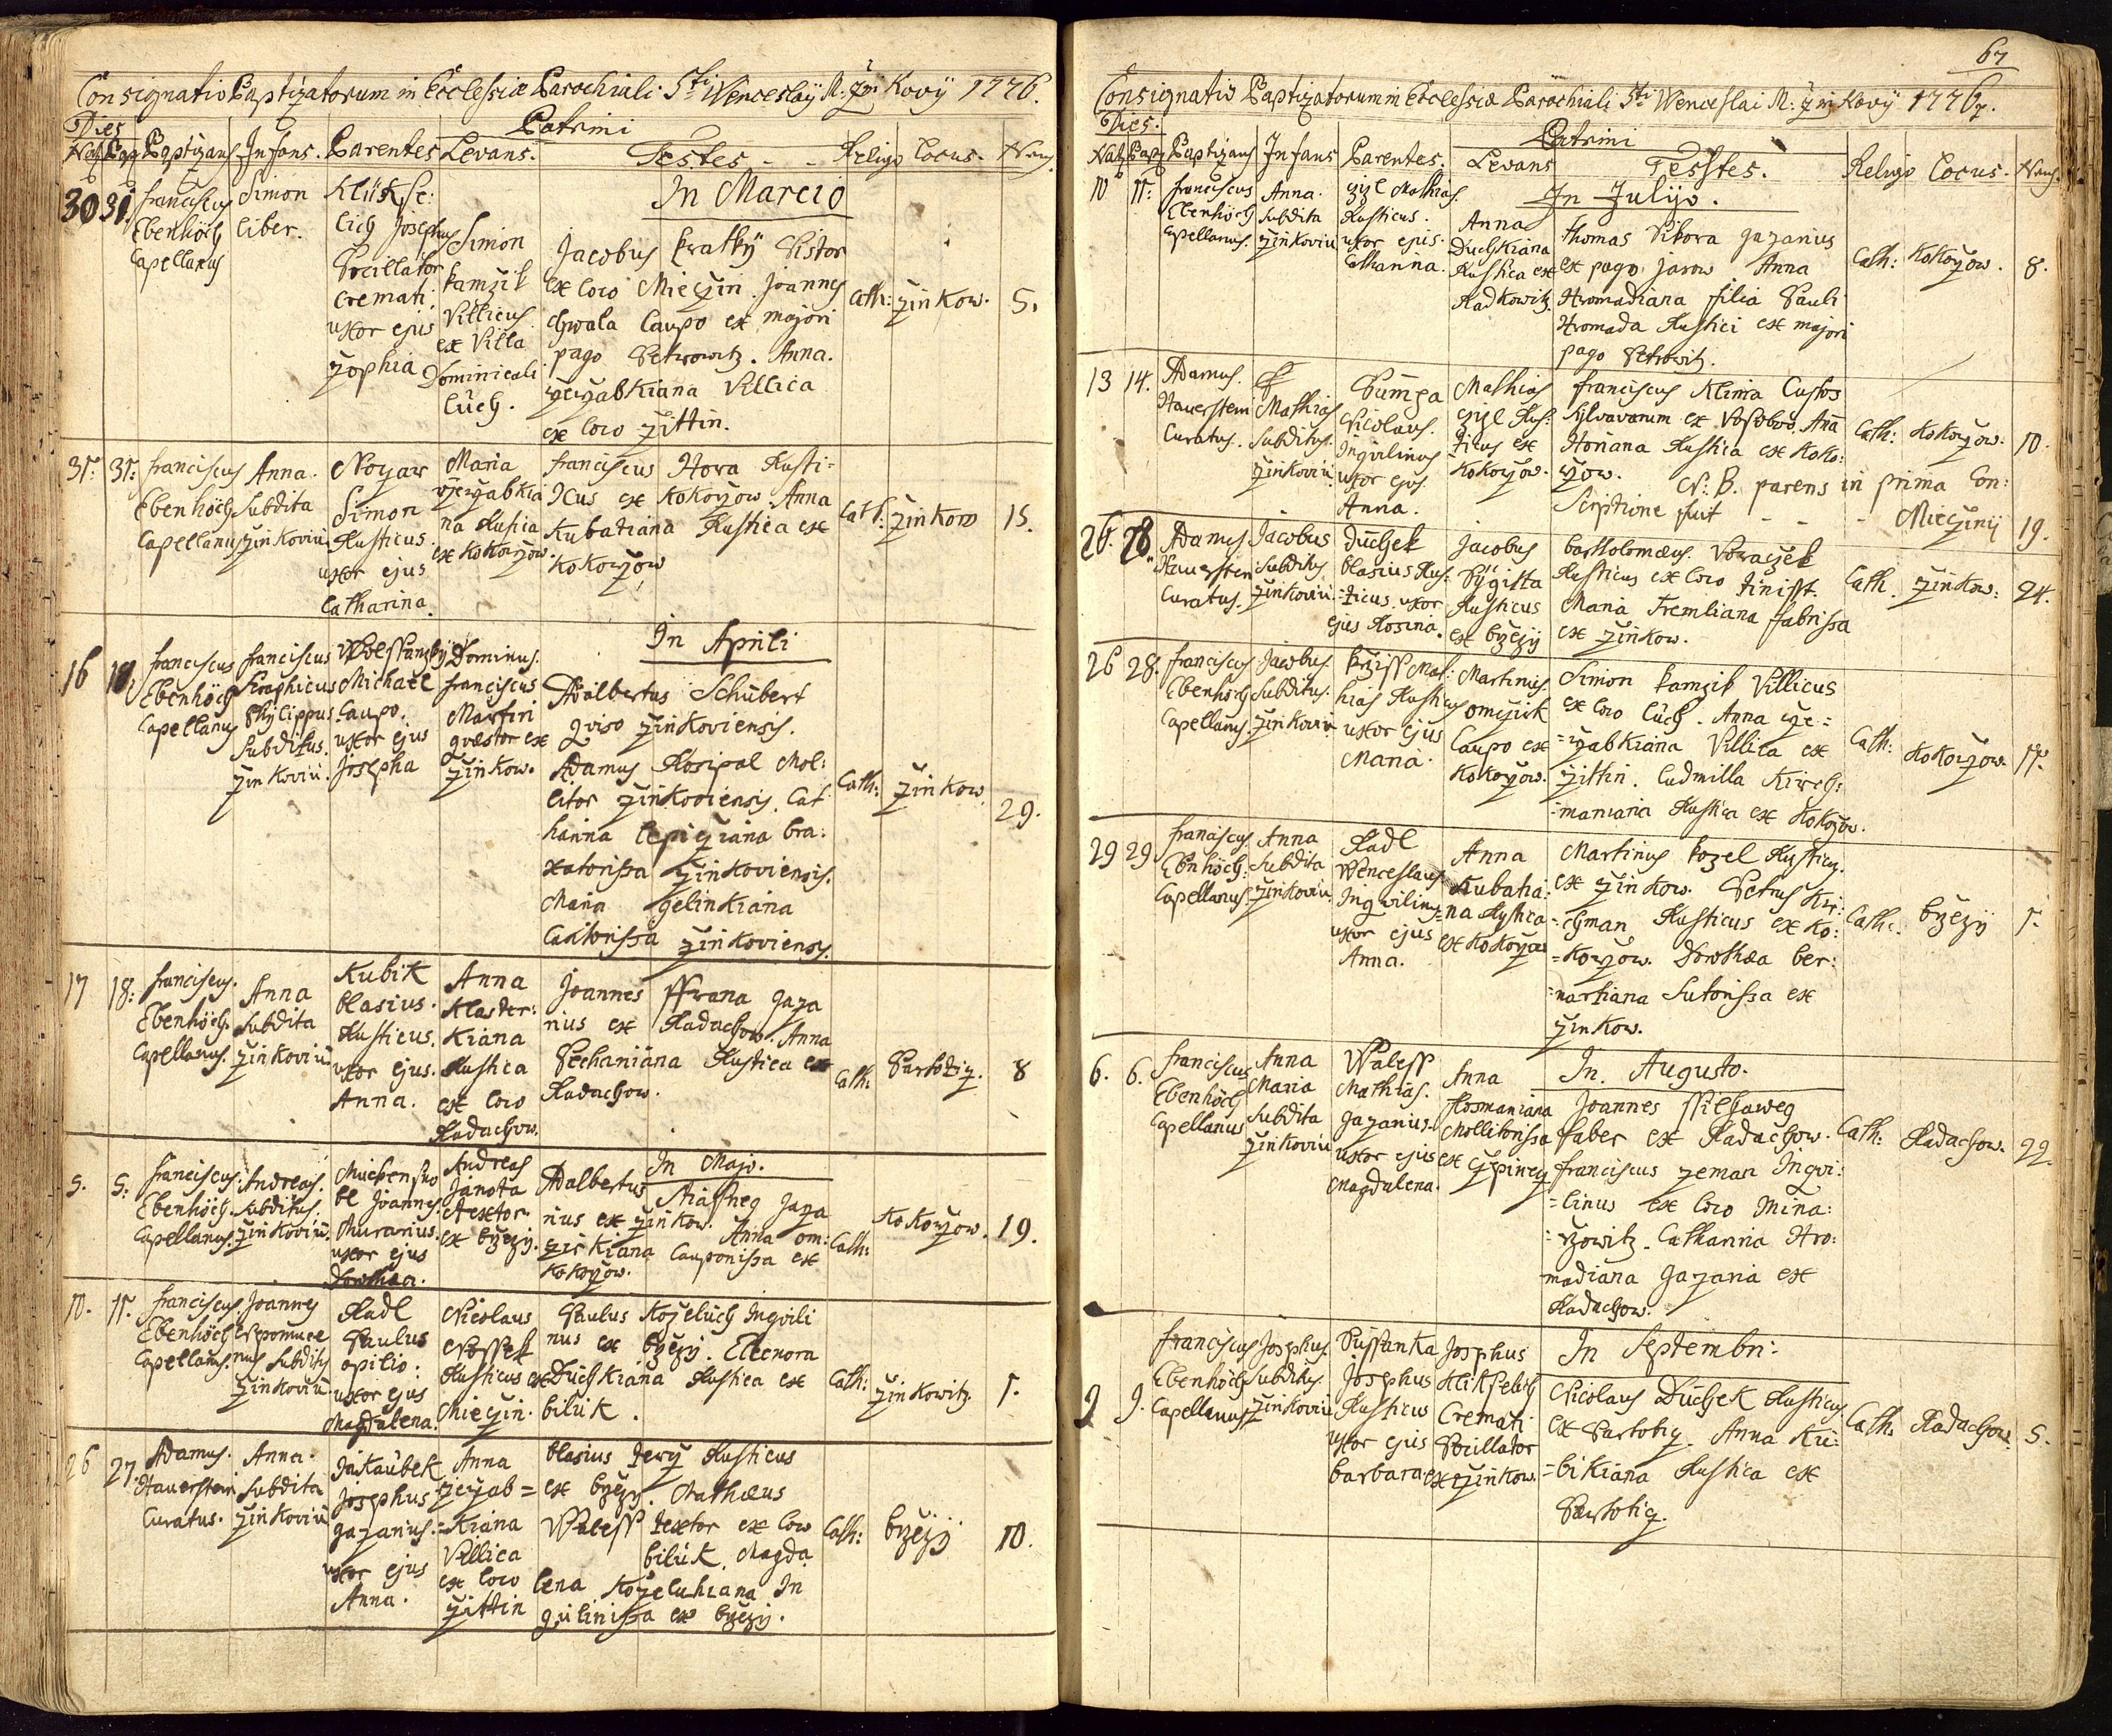 Consignatio Baptizatorum in Ecclesia Parochiali Sti Wenceslaÿ M. Kovÿ 1776.
Dies
Patrini
Nat Bap Baptizans Infans. Parentes Levans. Testes - - Religo Locus. Nrus
In Marcio
30 31. franciscus Ebenhöch Capellanus
Simon liber.
Klükse: lich Josephus Pocillator Cremati. uxor ejus Zophia
Simon kamzik Villicus ex Villa Dominicali Lüch.
Jacobus kratkÿ Pistor
ex loco Mieczin. Joannes
chwala Caupo ex majori
pago Petrowitz. Anna.
Villica
ex loco Zittin.
Cath: Zinkow. 5.
31: 31: franciscus Ebenhöch Capellanus
Anna. Subdita Zinkoviu.
Simon Rusticus. uxor ejus Catharina.
Maria na Rustica ex Kokorzow.
franciscus Hora Rusti=
cus ex Kokorzow. Anna
Kubatiana Rustica ex
Kokorzow
Cath: Zinkow 15.
In Aprili
16 18. franciscus Ebenhöch Capellanus
franciscus Seraphicus Phÿlippus Subditus. Zinkoviu.
Michael Caupo. uxor ejus Josepha
Dominus. franciscus Martini quæstor ex Zinkow.
Adalbertus Schubert
Zinkoviensis.
Adamus Mol:
litor Zinkoviensis. Cat
harina Bra:
xatorissa Zinkoviensis.
Maria gelinkiana
Zinkoviensis.
Cath: Zinkow. 29.
17 18: franciscus. Ebenhöch Capellanus.
Anna Subdita Zinkoviu
Kubik blasius. Rusticus. uxor ejus. Anna.
Anna Klaster: kiana Rustica ex loco Radachow.
Joannes Gaza
rius ex Radachow. Anna
Pechaniana Rustica ex
Radachow.
Cath: Partotiz. 8
In Majo.
5. 5: franciscus. Ebenhöch Capellanus.
Andreas. Subditus. Zinkoviu.
Joannes. Murarius. uxor ejus Dorothea.
Andreas Janota textor ex brzezÿ.
Adalbertus Gaza
rius ex Zinkow. Anna om:
zirkiana Cauponissa ex
Kokorzow.
Cath: Kokorzow. 19.
10. 11. franciscus. Ebenhöch Capellanus.
Joannes Nepomuce nus Subditus Zinkoviu
Radl Paulus opilio: uxor ejus Magdalena.
Nicolaus Rusticus ex Mieczin.
Paulus Kozeluch Inquili
nus ex brzezÿ. Eleonora
Düchkiana Rustica ex
bilük.
Cath: Zinkowitz. 1.
26 27. Adamus. Hauerstein Curatus.
Anna. Subdita Zinkoviu
Josephus gazarius. uxor ejus Anna.
Anna kiana Villica ex loco Zittin
blasius Rusticus
ex brzezÿ. Mathæus
Waless textor ex loco
bilük. Magda
lena Kozeluhiana In
quilinissa ex brzezÿ.
Cath: brzezÿ 10.
67
Consignatio Baptizatorum in Ecclesia Parochiali Sti Wenceslai M: Zinkovÿ 1776.
Dies.
Patrini
Nat Bap Baptizans Infans Parentes. Levans Testes. Religo Locus. Nrus.
In Julÿo.
10 11: franciscus Ebenhöch Capellanus.
Anna. Subdita Zinkoviu
Mathias. Rusticus. uxor ejus. Catharina.
Anna Duchkiana Rustica ex Radkowitz.
Thomas Sikora gazarius
ex pago Jarow Anna
Hromadiana filia Pauli
Hromada Rustici ex majori
pago Petrowitz.
Cath: Kokorzow. 8.
13 14. Adamus. Hauerstein Curatus.
Mathias Subditus. Zinkoviu.
Nicolaus. Inquilinus uxor ejus. Anna.
Mathias Rus: ticus ex Kokorzow.
franciscus Klima Custos
Sylvarum ex Añna
Horiana Rustica ex Koko:
rzow. N: B. parens in prima Con:
Scriptione fuit - - - Mieczinÿ 19.
Cath: Kokorzow. 10.
26. 28. Adamus Hauerstein Curatus.
Jacobus Subditus Zinkoviu.
Düchek blasius Rus: ticus. uxor ejus Rosina.
Jacobus Rusticus ex brzezÿ
bartholomæus. Voraczek
Rusticus ex loco tinisst.
Maria Tremliana fabrissa
ex Zinkow.
Cath. Zinkow: 24.
26 28. franciscus Ebenhöch Capellanus.
Jacobus. Subditus. Zinkoviu
krziss Mat: hias Rusticus uxor ejus Maria.
Martinus. omzirk Caupo ex Kokorzow.
Simon kamzik Villicus
ex loco Lüch. Anna
kiana Villica ex
Zittin. Ludmilla Kirch:
=maniana Rustica ex Kokorzow.
Cath: Kokorzow. 11.
29 29. franciscus Ebenhöch: Capellanus.
Anna Subdita Zinkoviu
Radl Wenceslaus Inquilinus uxor ejus Anna.
Anna Kubatia: =na Rustica ex Kokorzow
Martinus kozel Rusticus.
ex Zinkow. Petrus Kir:
=chman Rusticus ex Ko:
=korzow. Dorothæa ber:
=nartiana Sutorissa ex
Zinkow.
Cath: brzezÿ 1.
In Augusto.
6. 6. franciscus Ebenhöch Capellanus
Anna Maria Subdita Zinkoviu
Waless Mathias. Gazarius. uxor ejus Magdalena.
Anna Rosmaniana Mollitorissa ex
Joannes
faber ex Radachow.
franciscus zeman Inqui:
=linus ex loco Mina:
=rzowitz. Catharina Hro:
madiana Gazaria ex
Radachow.
Cath: Radachow. 22.
In Septembri:
9 9. franciscus Ebenhöch Capellanus
Josephus. Subditus. Zinkoviu
Josephus Rusticus uxor ejus barbara
Josephus Cremati Pocillator ex Zinkow.
Nicolaus Düchek Rusticus
ex Partotiz. Anna Ku:
=bikiana Rustica ex
Partotiz.
Cath: Radachow. 5.